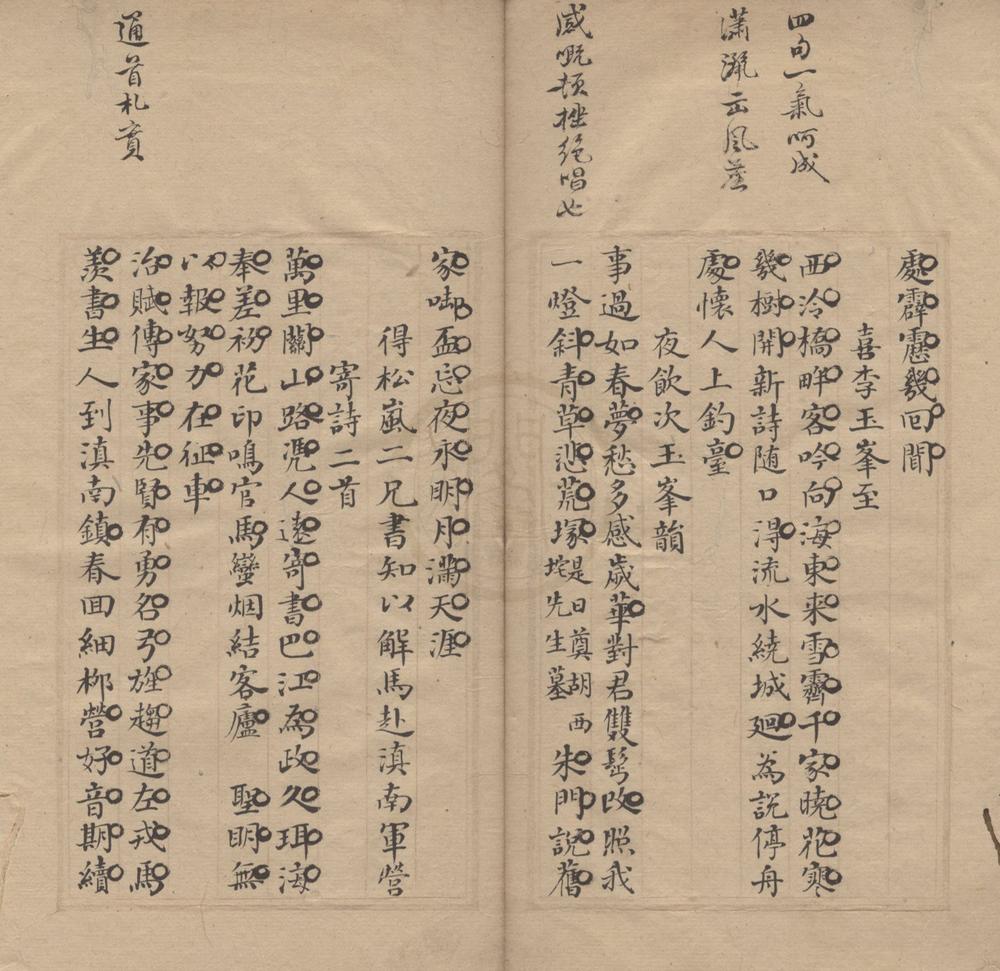 四句一氣呵成
瀟灑
感嘅頓挫絕唱也
處霹靂幾回聞
喜李玉峯至
西泠橋畔客吟向海東来雪霽千家曉花寒
幾樹開新詩随口得流水繞城廻為説停舟
處懷人上釣臺
夜飲次玉峯韻
事過如春夢愁多感歲華對君雙髩改照我
一燈斜青草悲荒塚是日奠胡西垞先生墓朱門説舊
通首札實
家啣盃忘夜永明月滿天涯
得松嵐二兄書知以解馬赴滇南軍營
寄詩二首
萬里關山路凴人遠寄書巴江為政久珥海
奉差初花印鳴官馬蠻烟結客廬 聖明無
以報努力在征車
治賦傳家事先賢有勇名弓旌趨道左戎馬
羨書生人到滇南鎮春回細柳營好音期續